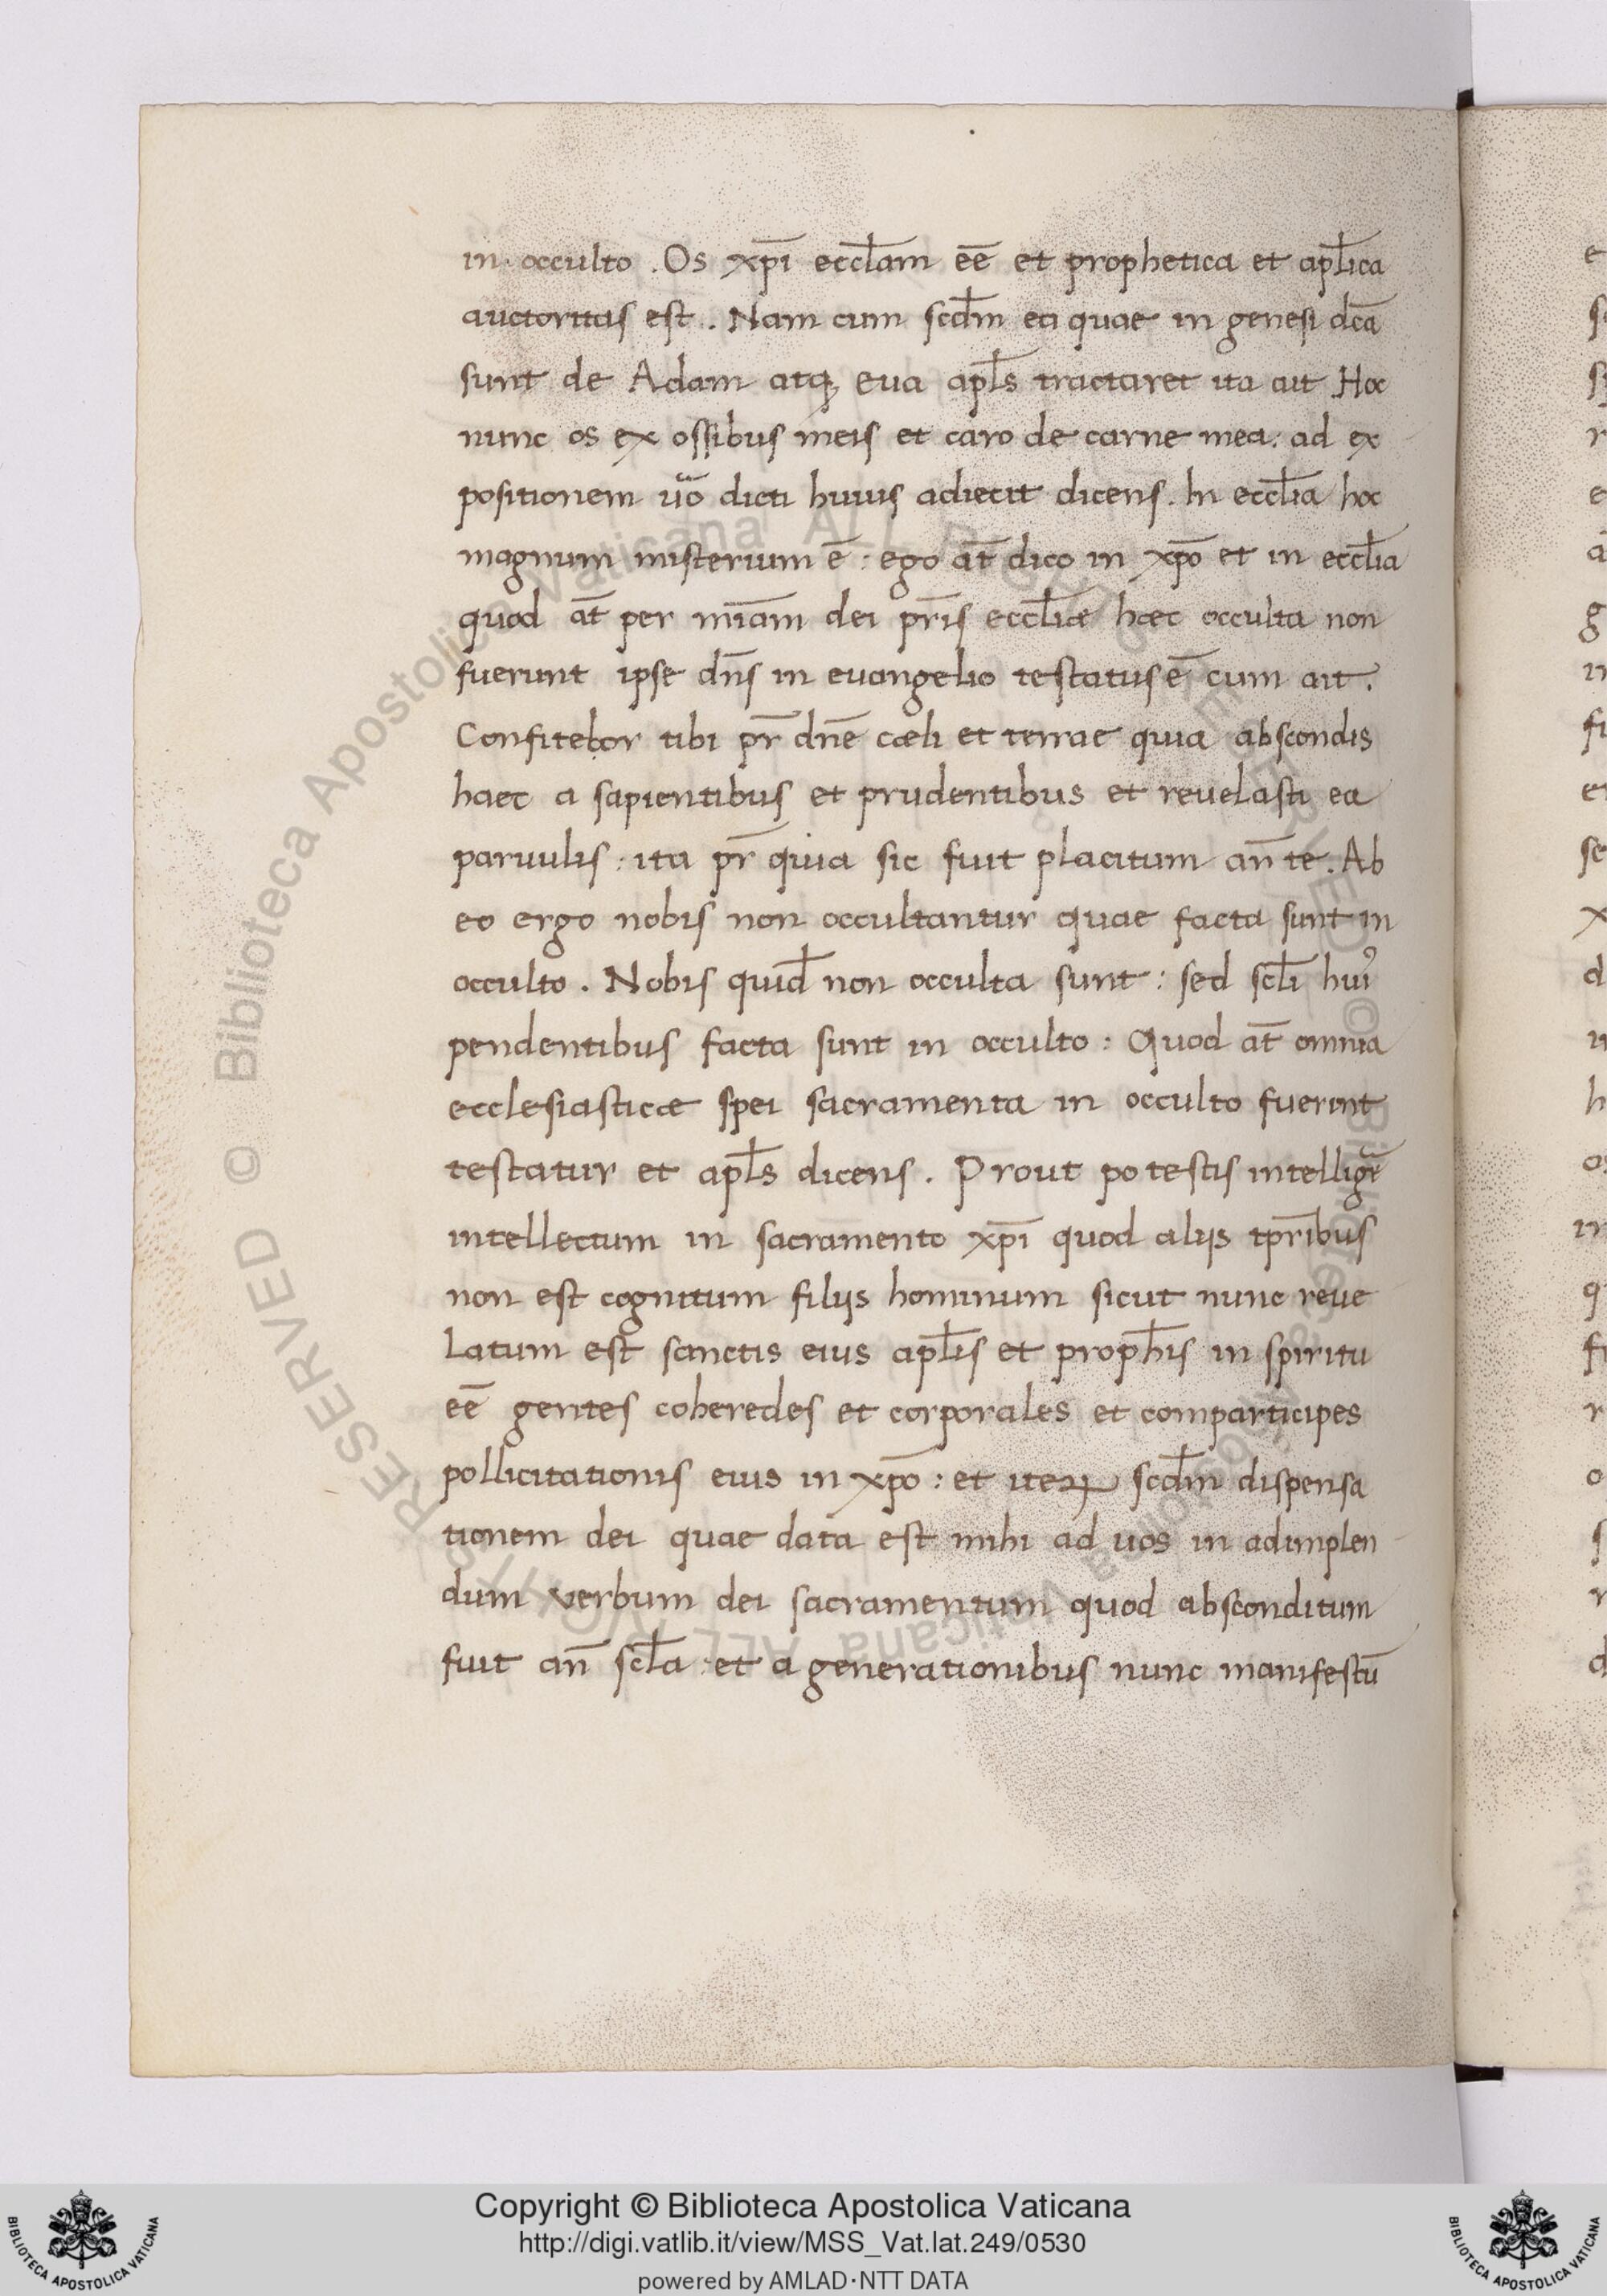 in occulto . Os xp̄i eccl̄am ēe et prophetica et apl̄ica
auctoritas est . Nam cum scd̄m ea quae in genesi dc̄a
sunt de Adam atq; eua apl̄s tractaret ita ait Hoc
nunc os ex ossibus meis et caro de carne mea : ad ex
positionem uoᷓ dicti huius adiecit dicens . In eccl̄ia hoc
magnum misterium ē : ego at̄ dico in xp̄o et in eccl̄ia
quod at̄ per mīam dei pr̄is eccl̄iae haec occulta non
fuerunt ipse dn̄s in euangelio testatus ē cum ait .
Confitebor tibi pr̄ dn̄e cæli et terrae quia abscondis
haec a sapientibus et prudentibus et reuelasti ea
paruulis : ita pr̄ quia sic fuit placitum an̄ te . Ab
eo ergo nobis non occultantur quae facta sunt in
occulto . Nobis quid̄ non occulta sunt : sed scl̄i hui᾿
pendentibus facta sunt in occulto : Quod at̄ omnia
ecclesiasticæ spei sacramenta in occulto fuerint
testatur et apl̄s dicens . Prout potestis intelligē
intellectum in sacramento xp̄i quod alijs tpr̄ibus
non est cognitum filijs hominum sicut nunc reue
latum est sanctis eius apl̄is et proph̄is in spiritu
ēe gentes coheredes et corporales et comparticipes
pollicitationis eius in xp̄o : et iteꝝ scd̄m dispensa
tionem dei quae data est mihi ad uos in adimplen
dum verbum dei sacramentum quod absconditum
fuit an̄ scl̄a : et a generationibus nunc manifestū
Copyright © Biblioteca Apostolica Vaticana
http://digi.vatlib.it/view/MSS_Vat.lat.249/0530
powered by AMLAD·NTT DATA
BIBLIOTECA APOSTOLICA VATICANA
BIBLIOTECA APOSTOLICA VATICANA
© Biblioteca Apostolica Vaticana ALL RIGHTS RESERVED